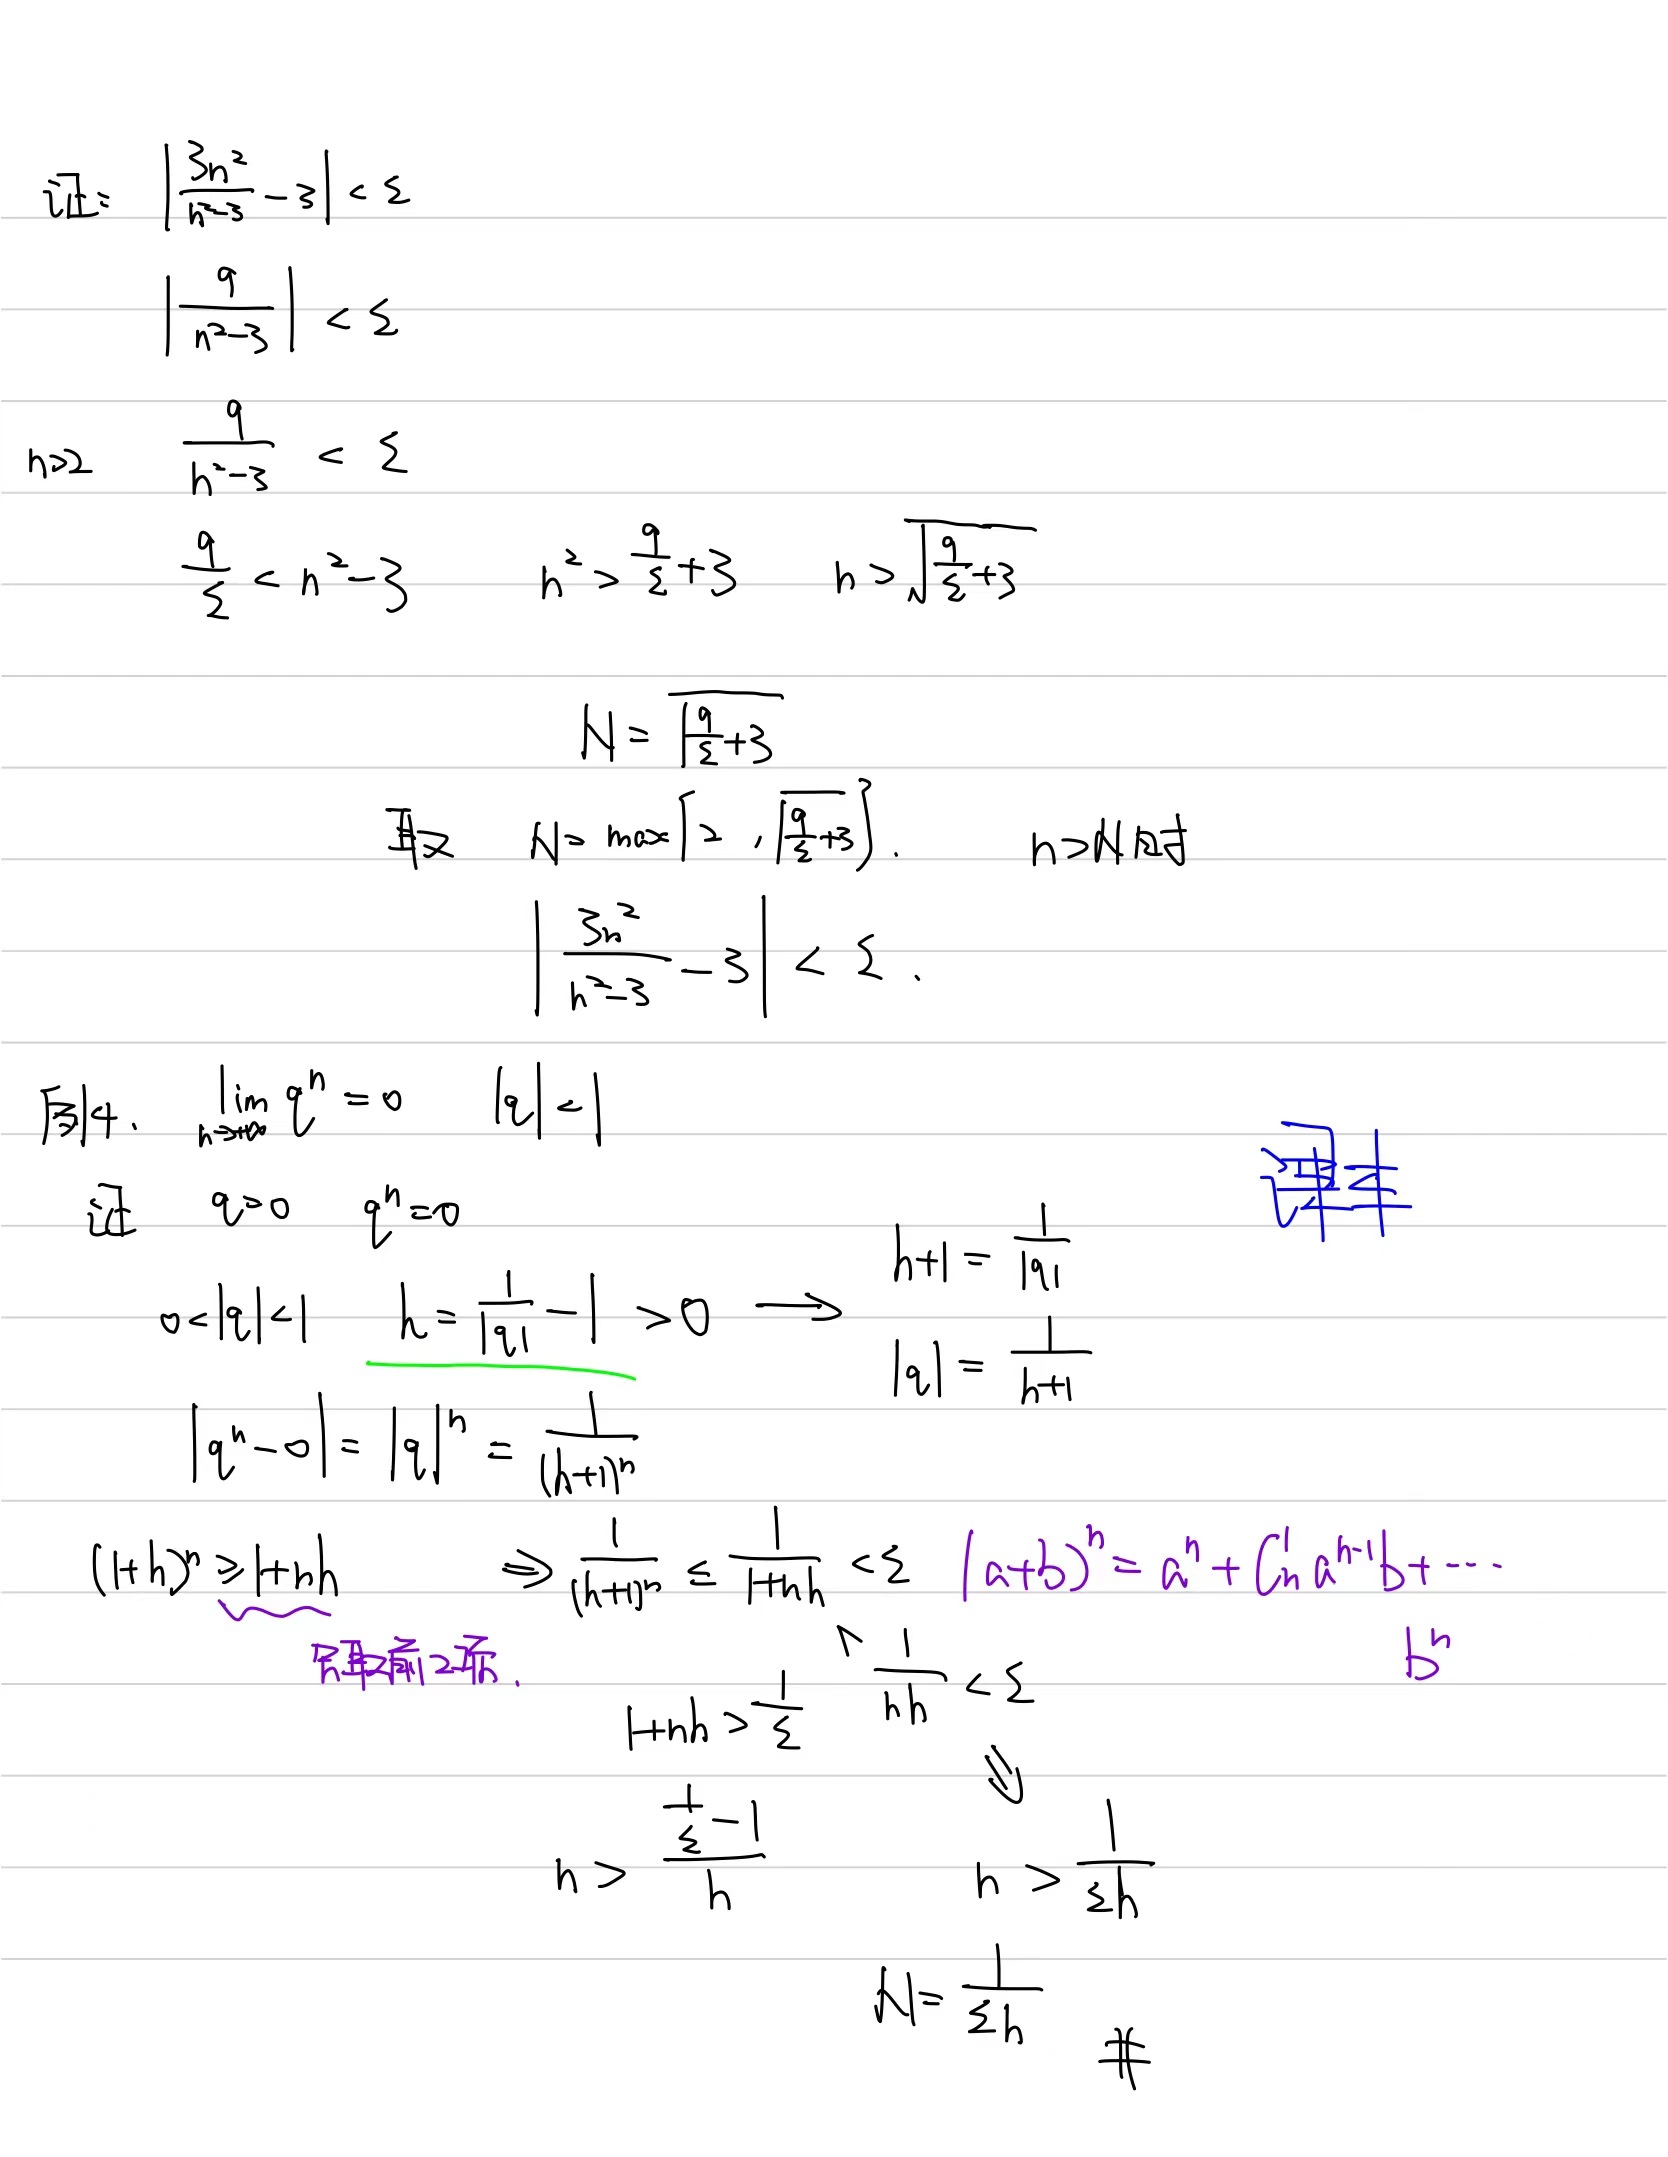 证: |3n²/(n²-3) - 3| < ε
|9/(n²-3)| < ε
n>2 9/(n²-3) < ε
9/ε < n²-3 n² > 9/ε+3 n > √(9/ε+3)
N = √(9/ε+3)
取 N = max{2, √(9/ε+3)}. n>N时
|3n²/(n²-3) - 3| < ε.
例4. lim_{n→+∞} qⁿ = 0 |q|<1
证 q=0 qⁿ=0
0<|q|<1 h = 1/|q| - 1 > 0 → h+1 = 1/|q|
|q| = 1/(h+1)
|qⁿ-0| = |q|ⁿ = 1/(h+1)ⁿ
(1+h)ⁿ ≥ 1+nh ⇒ 1/(h+1)ⁿ ≤ 1/(1+nh) < ε (a+b)ⁿ = aⁿ + C¹ₙ aⁿ⁻¹b + ⋯
bⁿ
只取前2项.
1+nh > 1/ε ∧ 1/(nh) < ε
⇓
n > (1/ε - 1)/h n > 1/(εh)
N = 1/(εh)
#